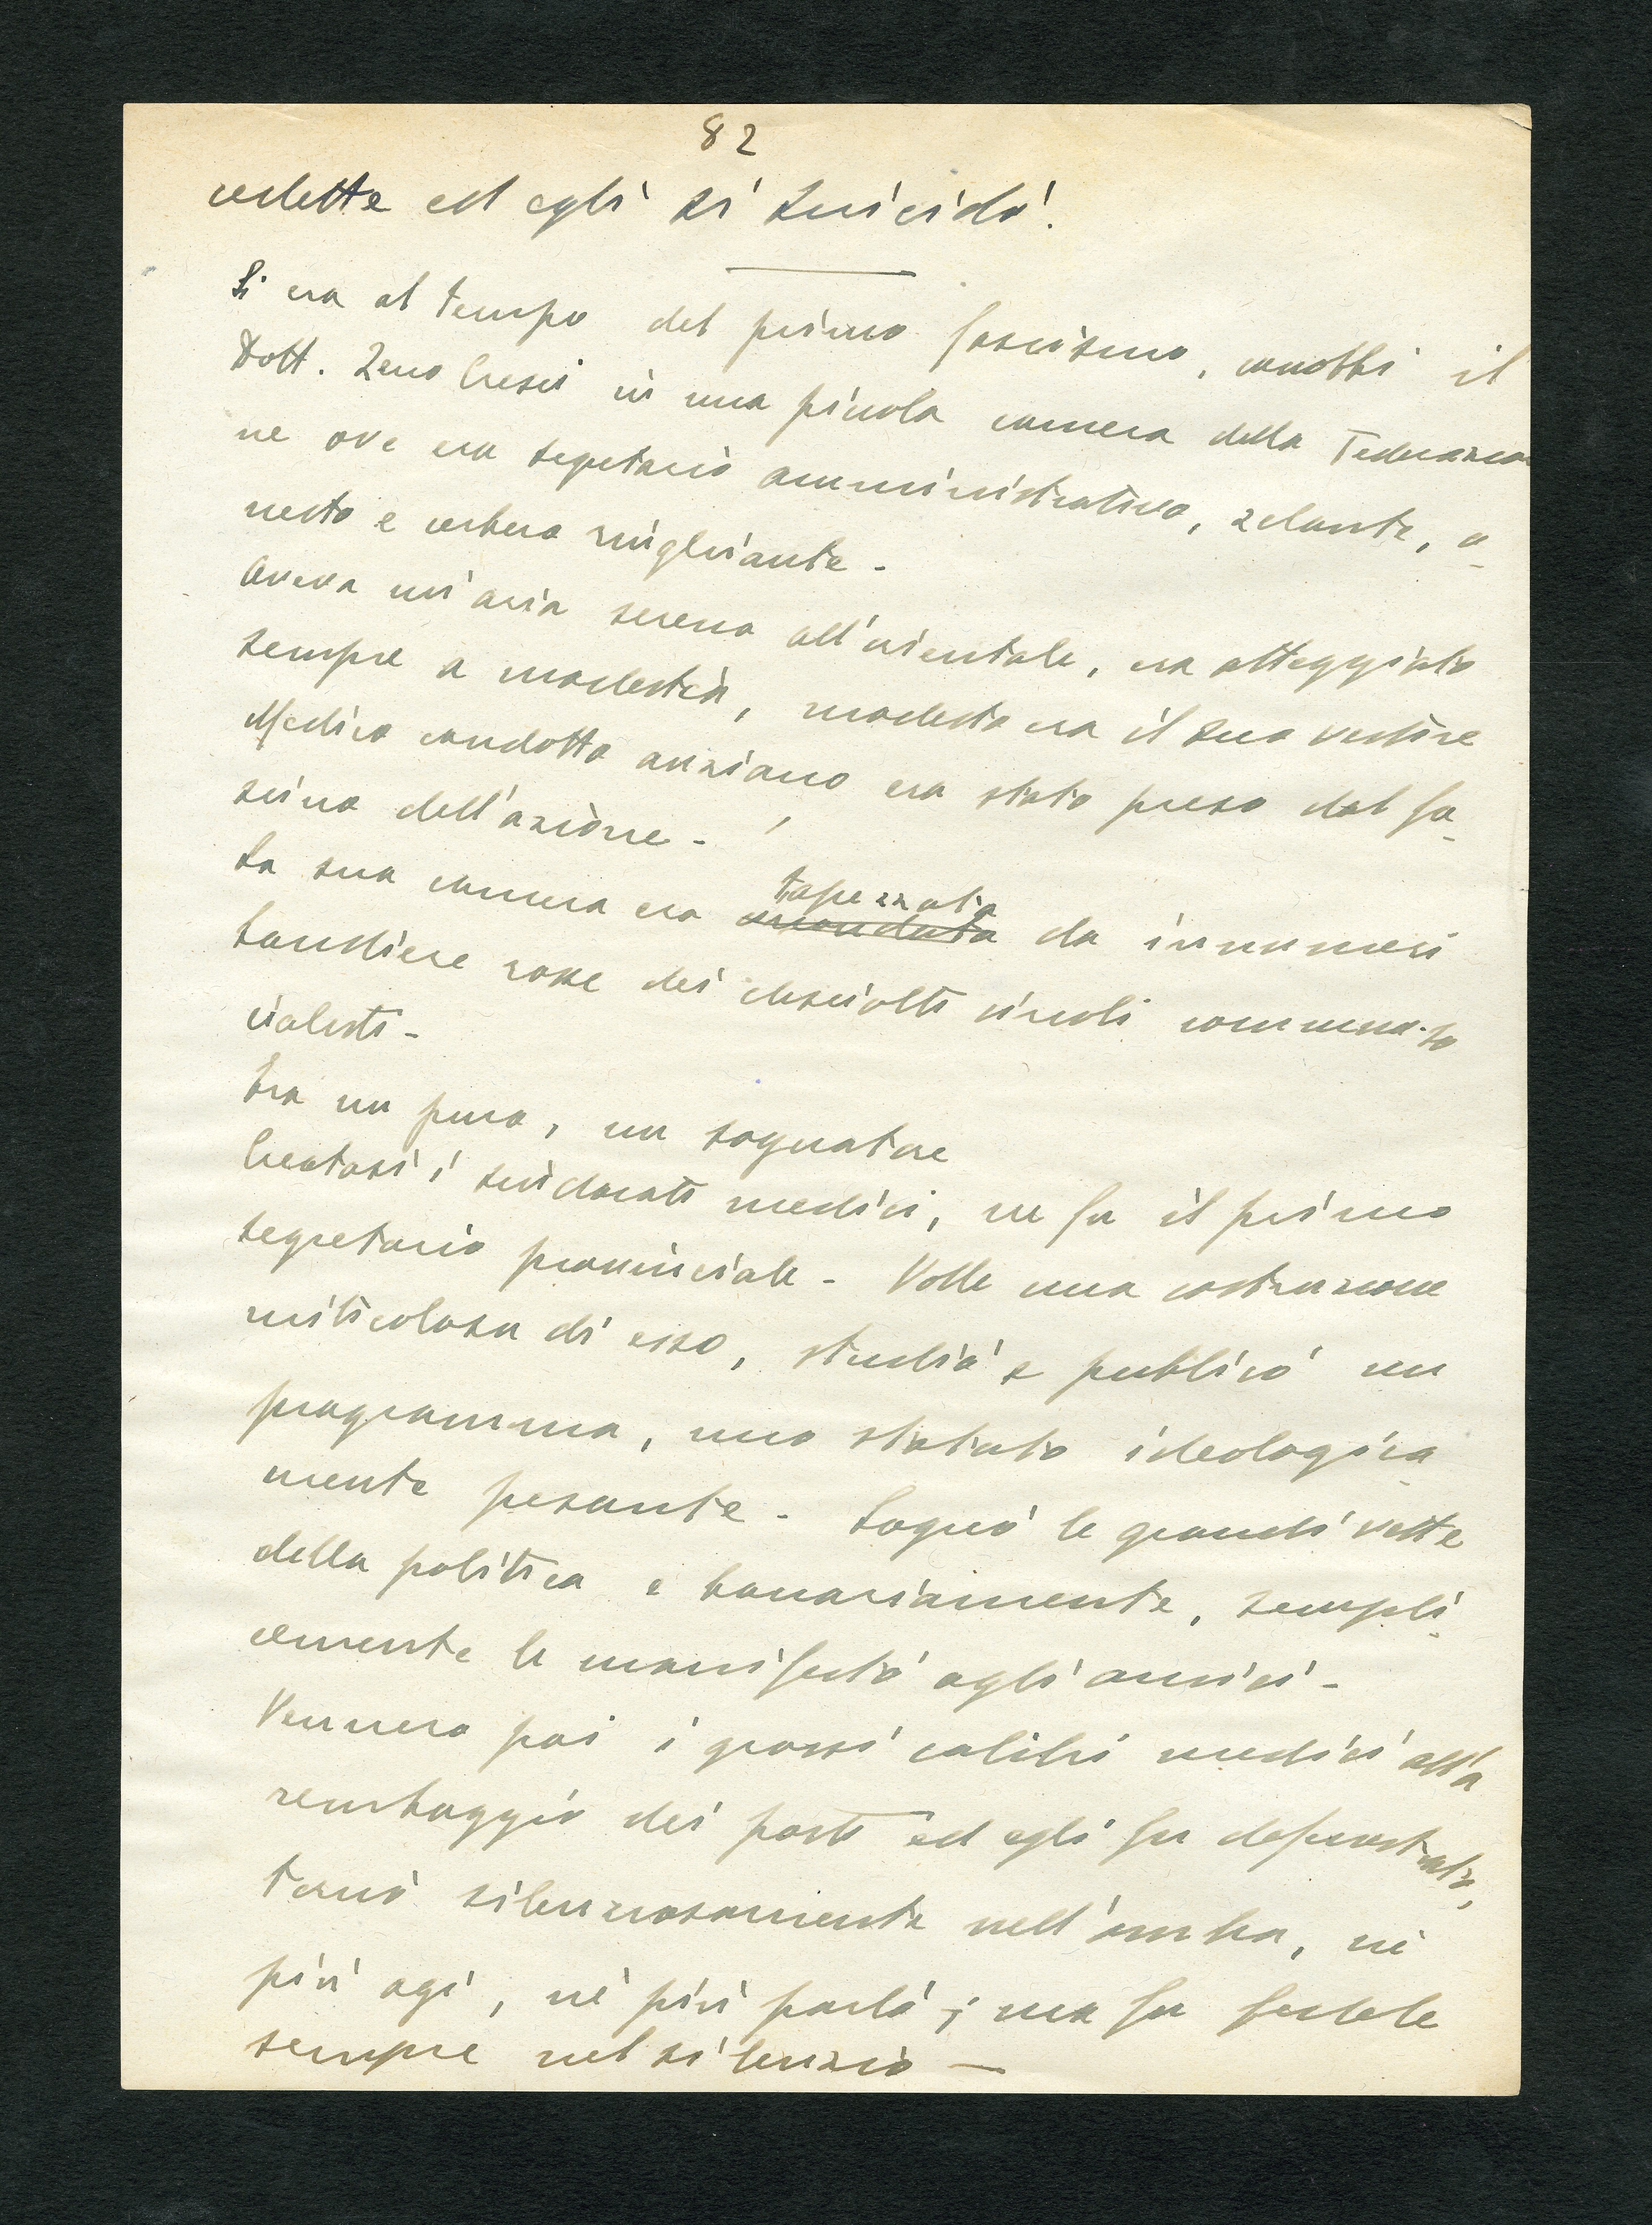 82
cedette ed egli si suicidò.
Si era al tempo del primo fascismo, conobbi il
Dott. Zeno Cresci in una piccola camera della Federazio
ne ove era segretario amministrativo, zelante, o-
nesto e cerbero ringhiante -
Aveva un'aria serena all'orientale, era atteggiato
sempre a modestia, modesto era il suo vestire
Medico condotto anziano era stato preso dal fa-
scino dell'azione -
La sua camera era tapezzata da innumeri
bandiere rosse dei disciolti circoli comuno-so
cialisti -
Era un puro, un sognatore
Creatosi i sindacati medici, ne fu il primo
segretario provinciale - Volle una costruzione
miticolosa di esso, studiò e publicò un
programma, uno statuto ideologica
mente pesante - Sognò le grandi vette
della politica e bonariamente, sempli-
cemente le manifestò agli amici -
Vennero poi i grossi calibri medici all'a
rembaggio dei posti ed egli fu defenestrato,
tornò silenziosamente nell'ombra, nè
più agì, nè più parlò; ma fu fedele
sempre nel silenzio —